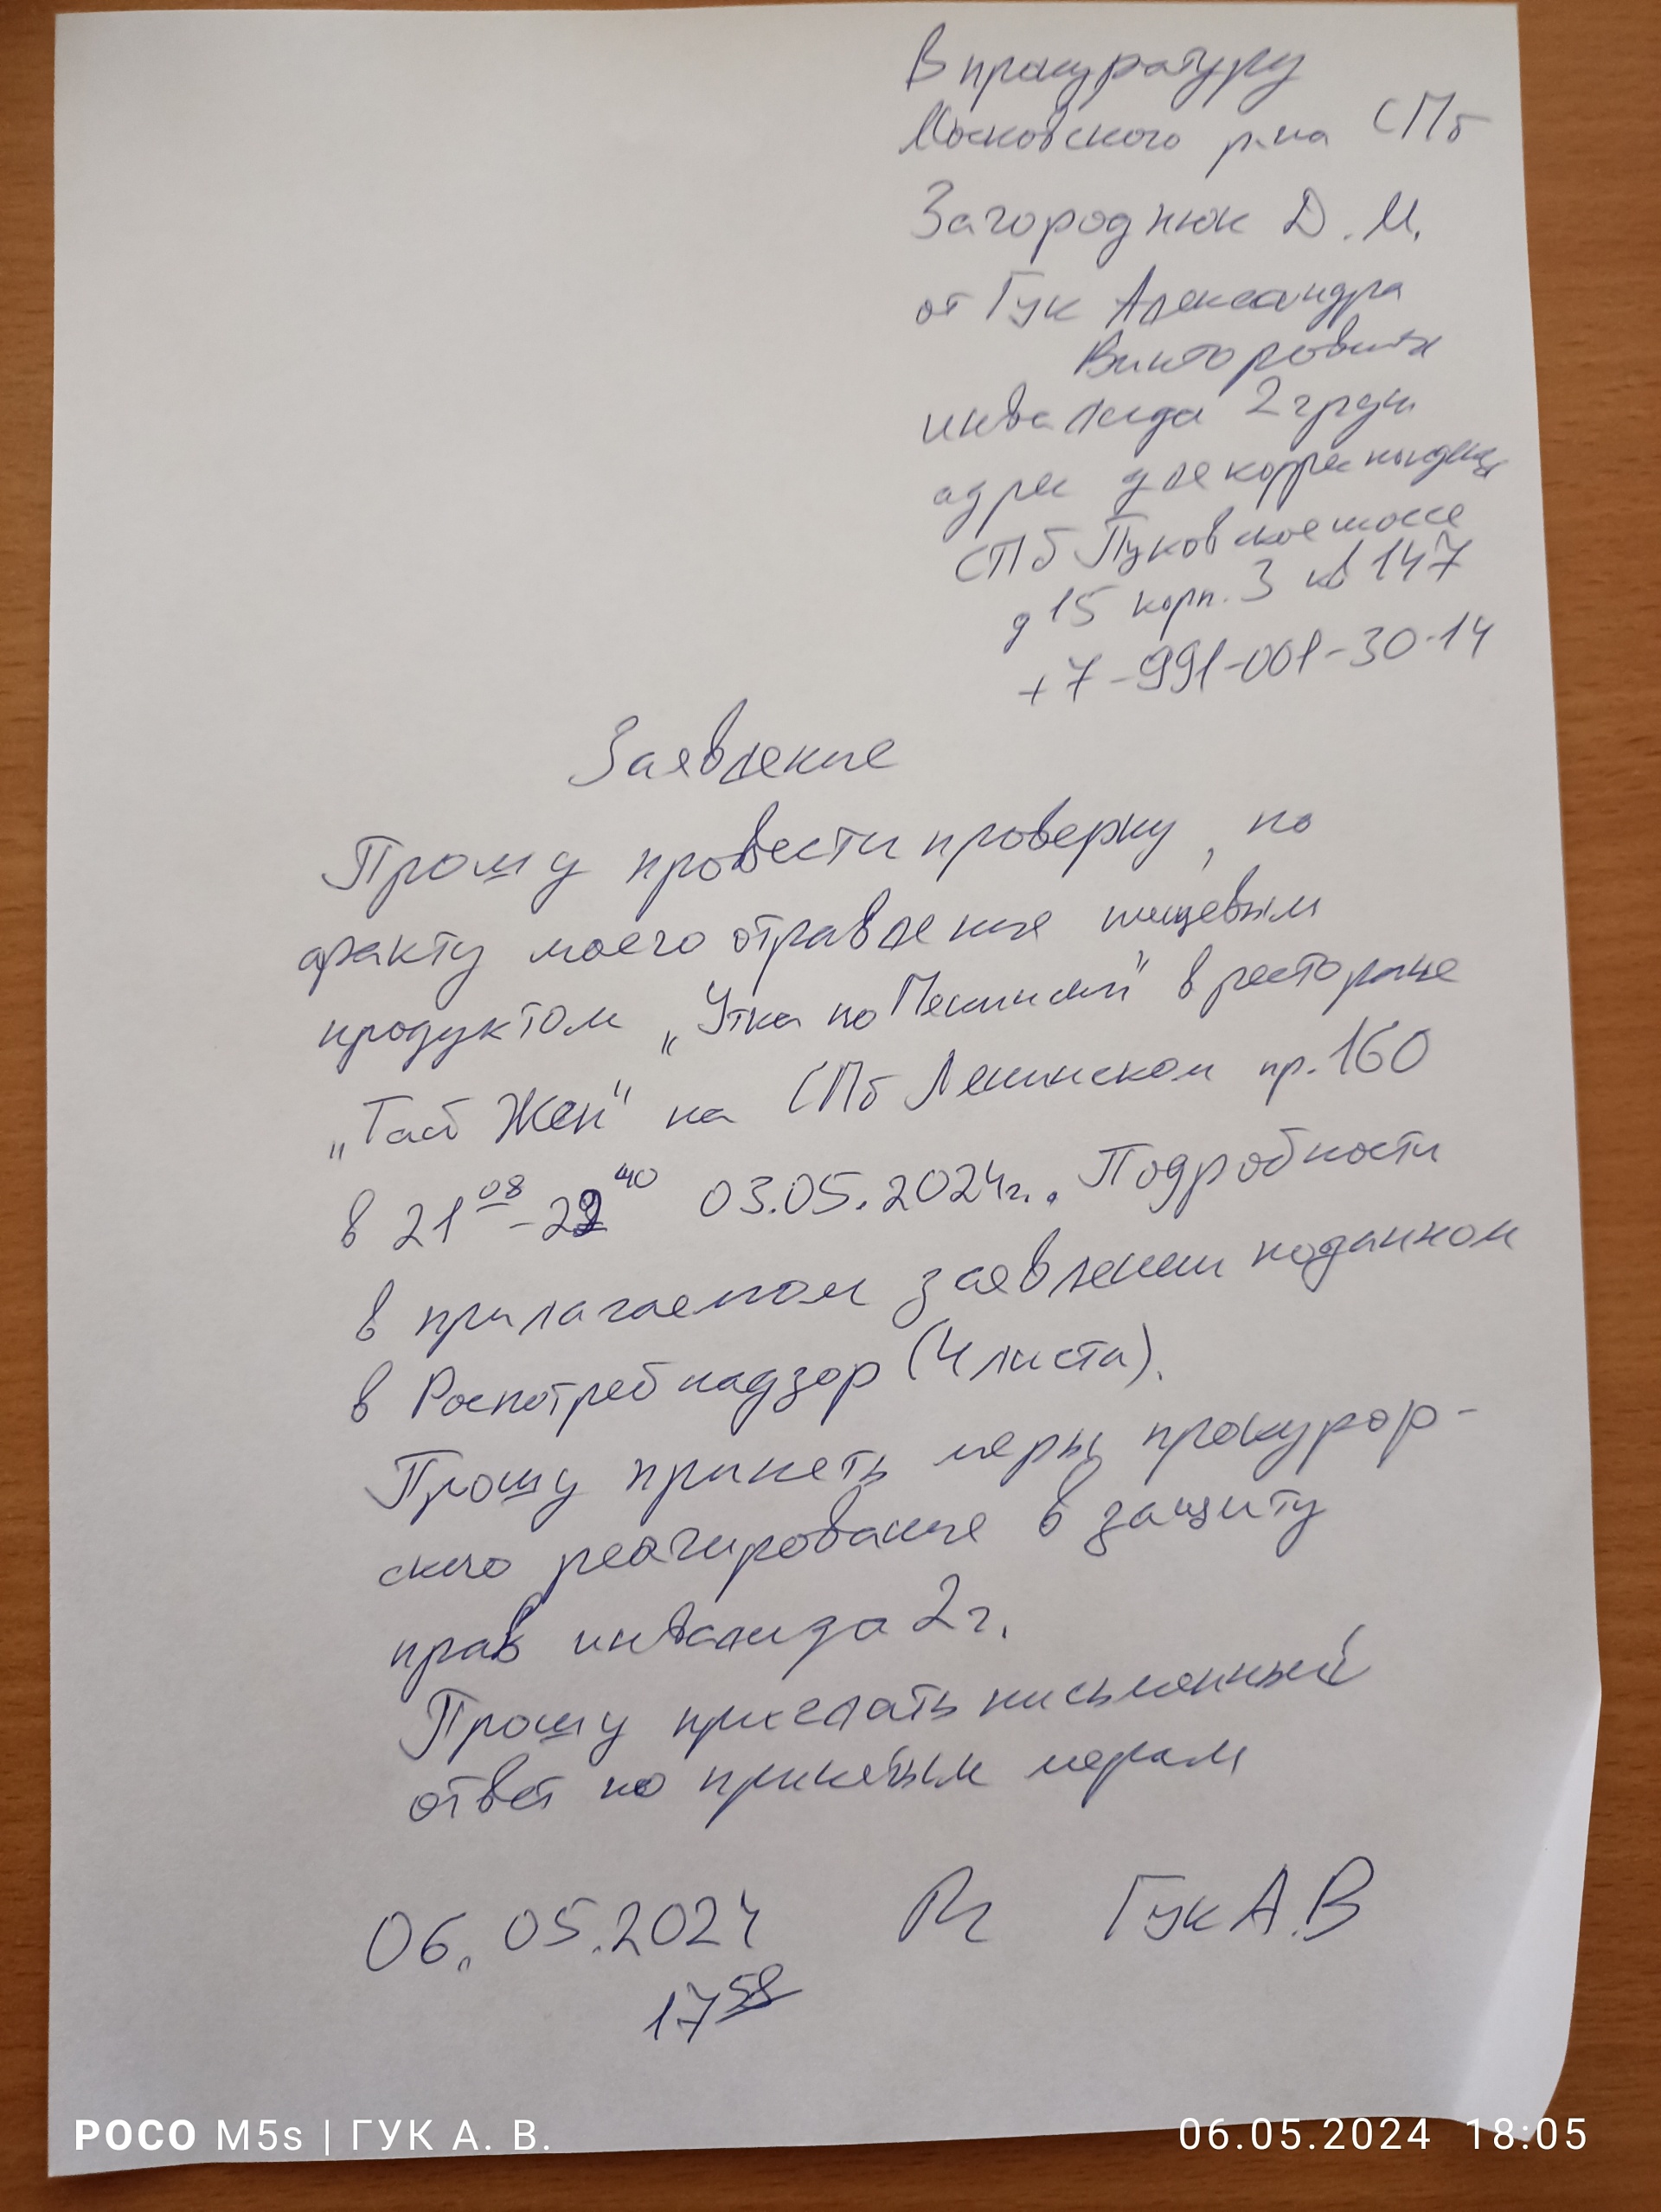 В прокуратуру
Московского р-на СПб
Загороднюк Д.М.
от Гук Александра
Викторовича
инвалида 2 груп
адрес для корреспонденц
СПб Пуковское шоссе
д 15 корп. 3 кв 147
+7-991-001-30-14
Заявление
Прошу провести проверку, по
факту моего отравления пищевым
продуктом „Утка по Пекински" в ресторане
„Тай Жен" на СПб Ленинском пр. 160
в 21 08 - 22 40 03.05.2024г.. Подробности
в прилагаемом заявлении поданном
в Роспотребнадзор (4 листа).
Прошу принять меры прокурор-
ского реагирование в защиту
прав инвалида 2г.
Прошу прислать письменный
ответ по принятым мерам
06.05.2024 Гук А.В
17 58
POCO M5s | ГУК А. В.
06.05.2024 18:05